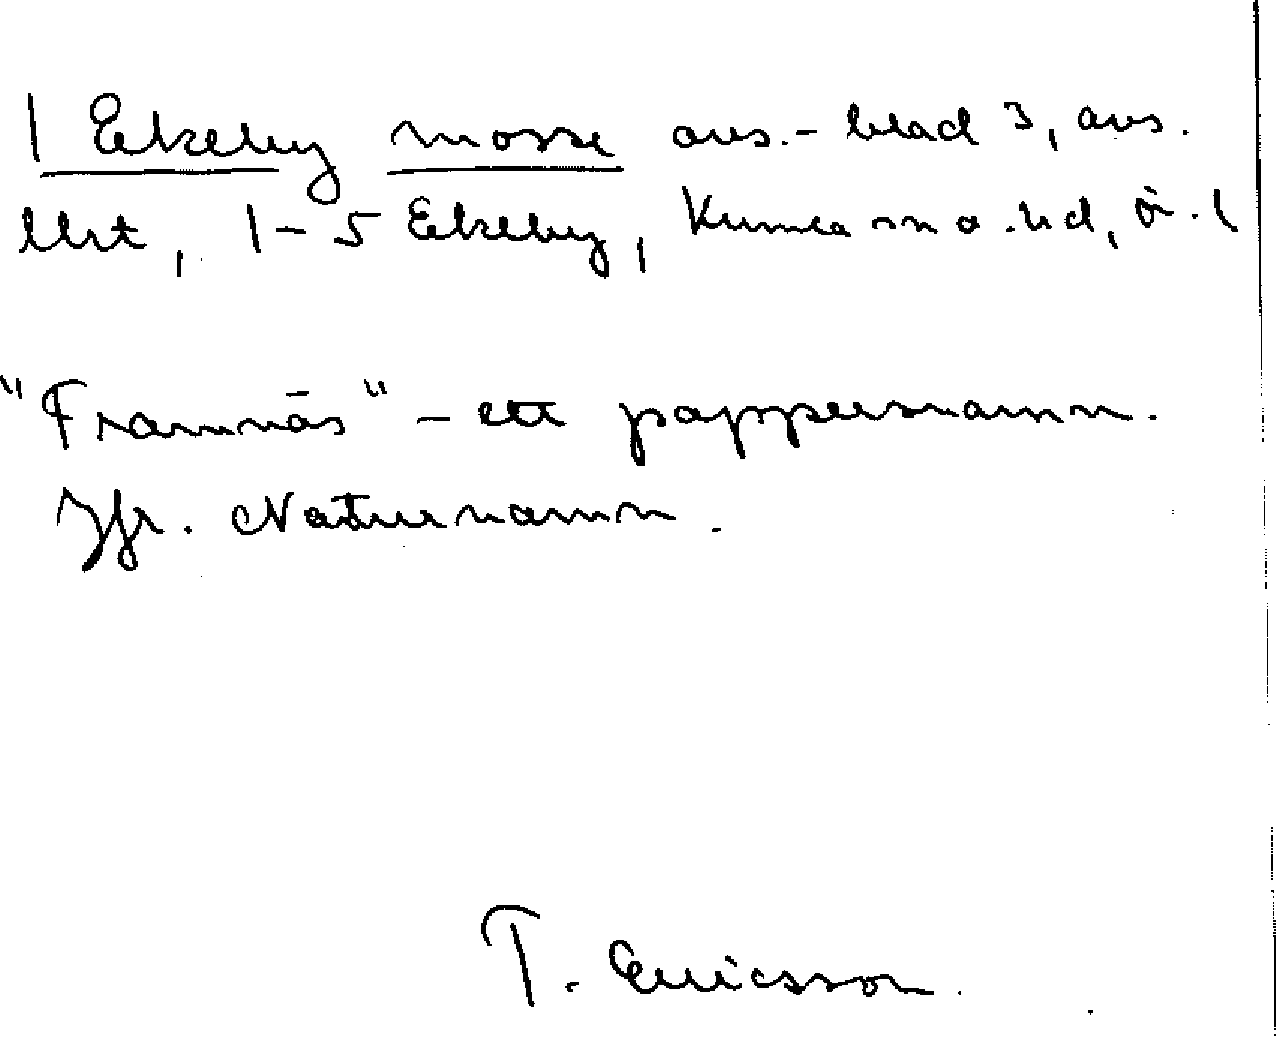 1 Ekeby mosse avs.- blad 3, avs.
1-5 Ekeby, Kumla sn o. hd, ö. l
"Framnäs" - ett pappersnamn.
Jfr. Naturnamn.
T. Ericsson.